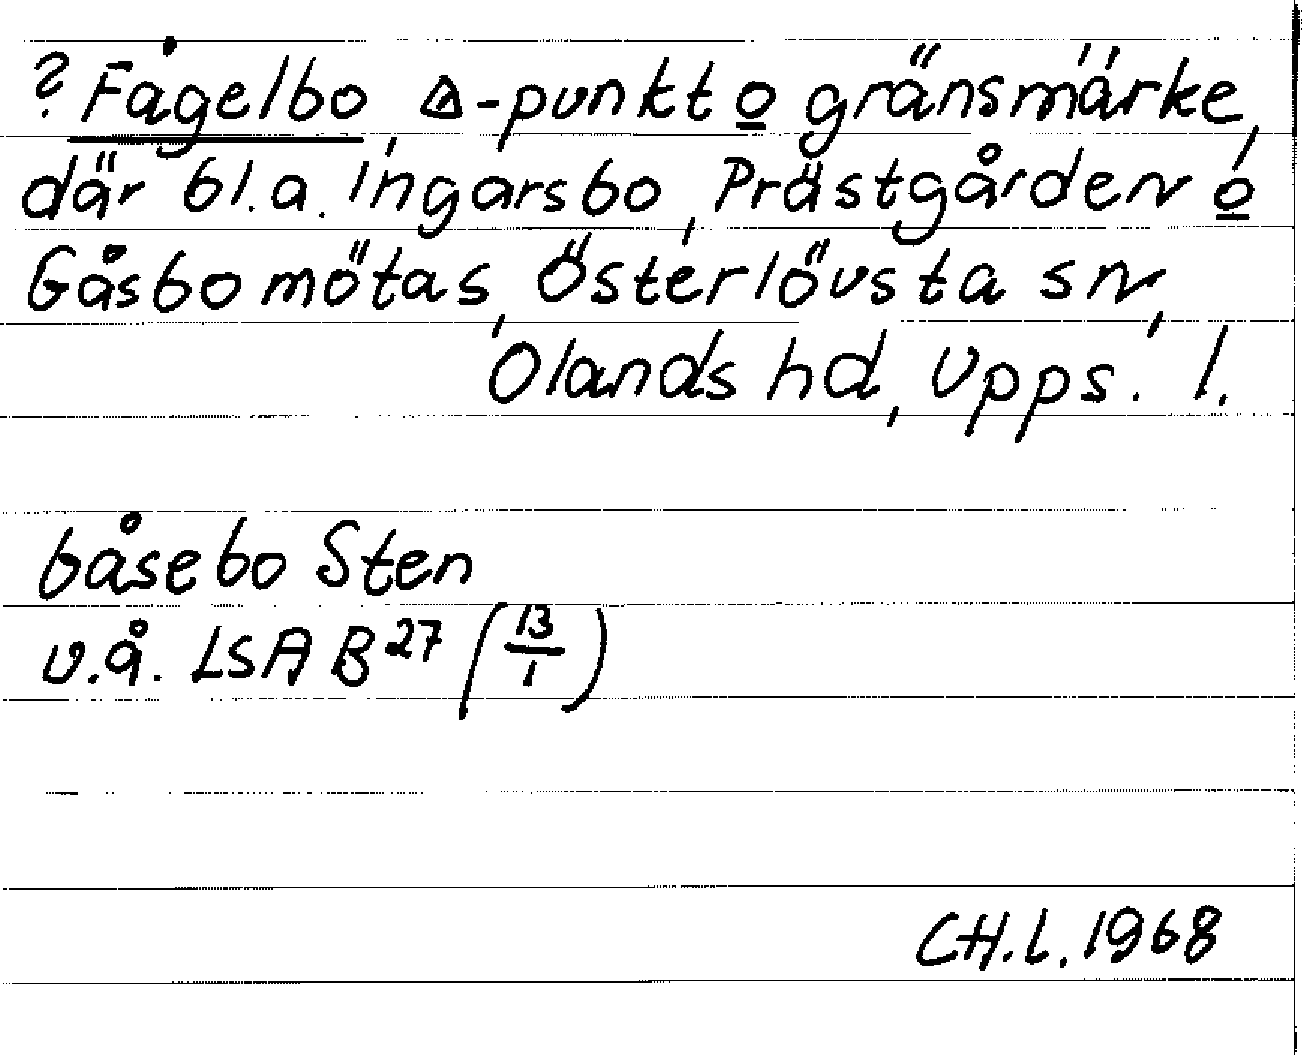 ? Fågelbo, △-punkt o gränsmärke,
där bl.a. Ingarsbo, Prästgården o
Gåsbo mötas, Österlövsta sn,
Olands hd, Upps. l.
Gåsebo Sten
v.å. LSA B²⁷ (13/1)
CH.L. 1968